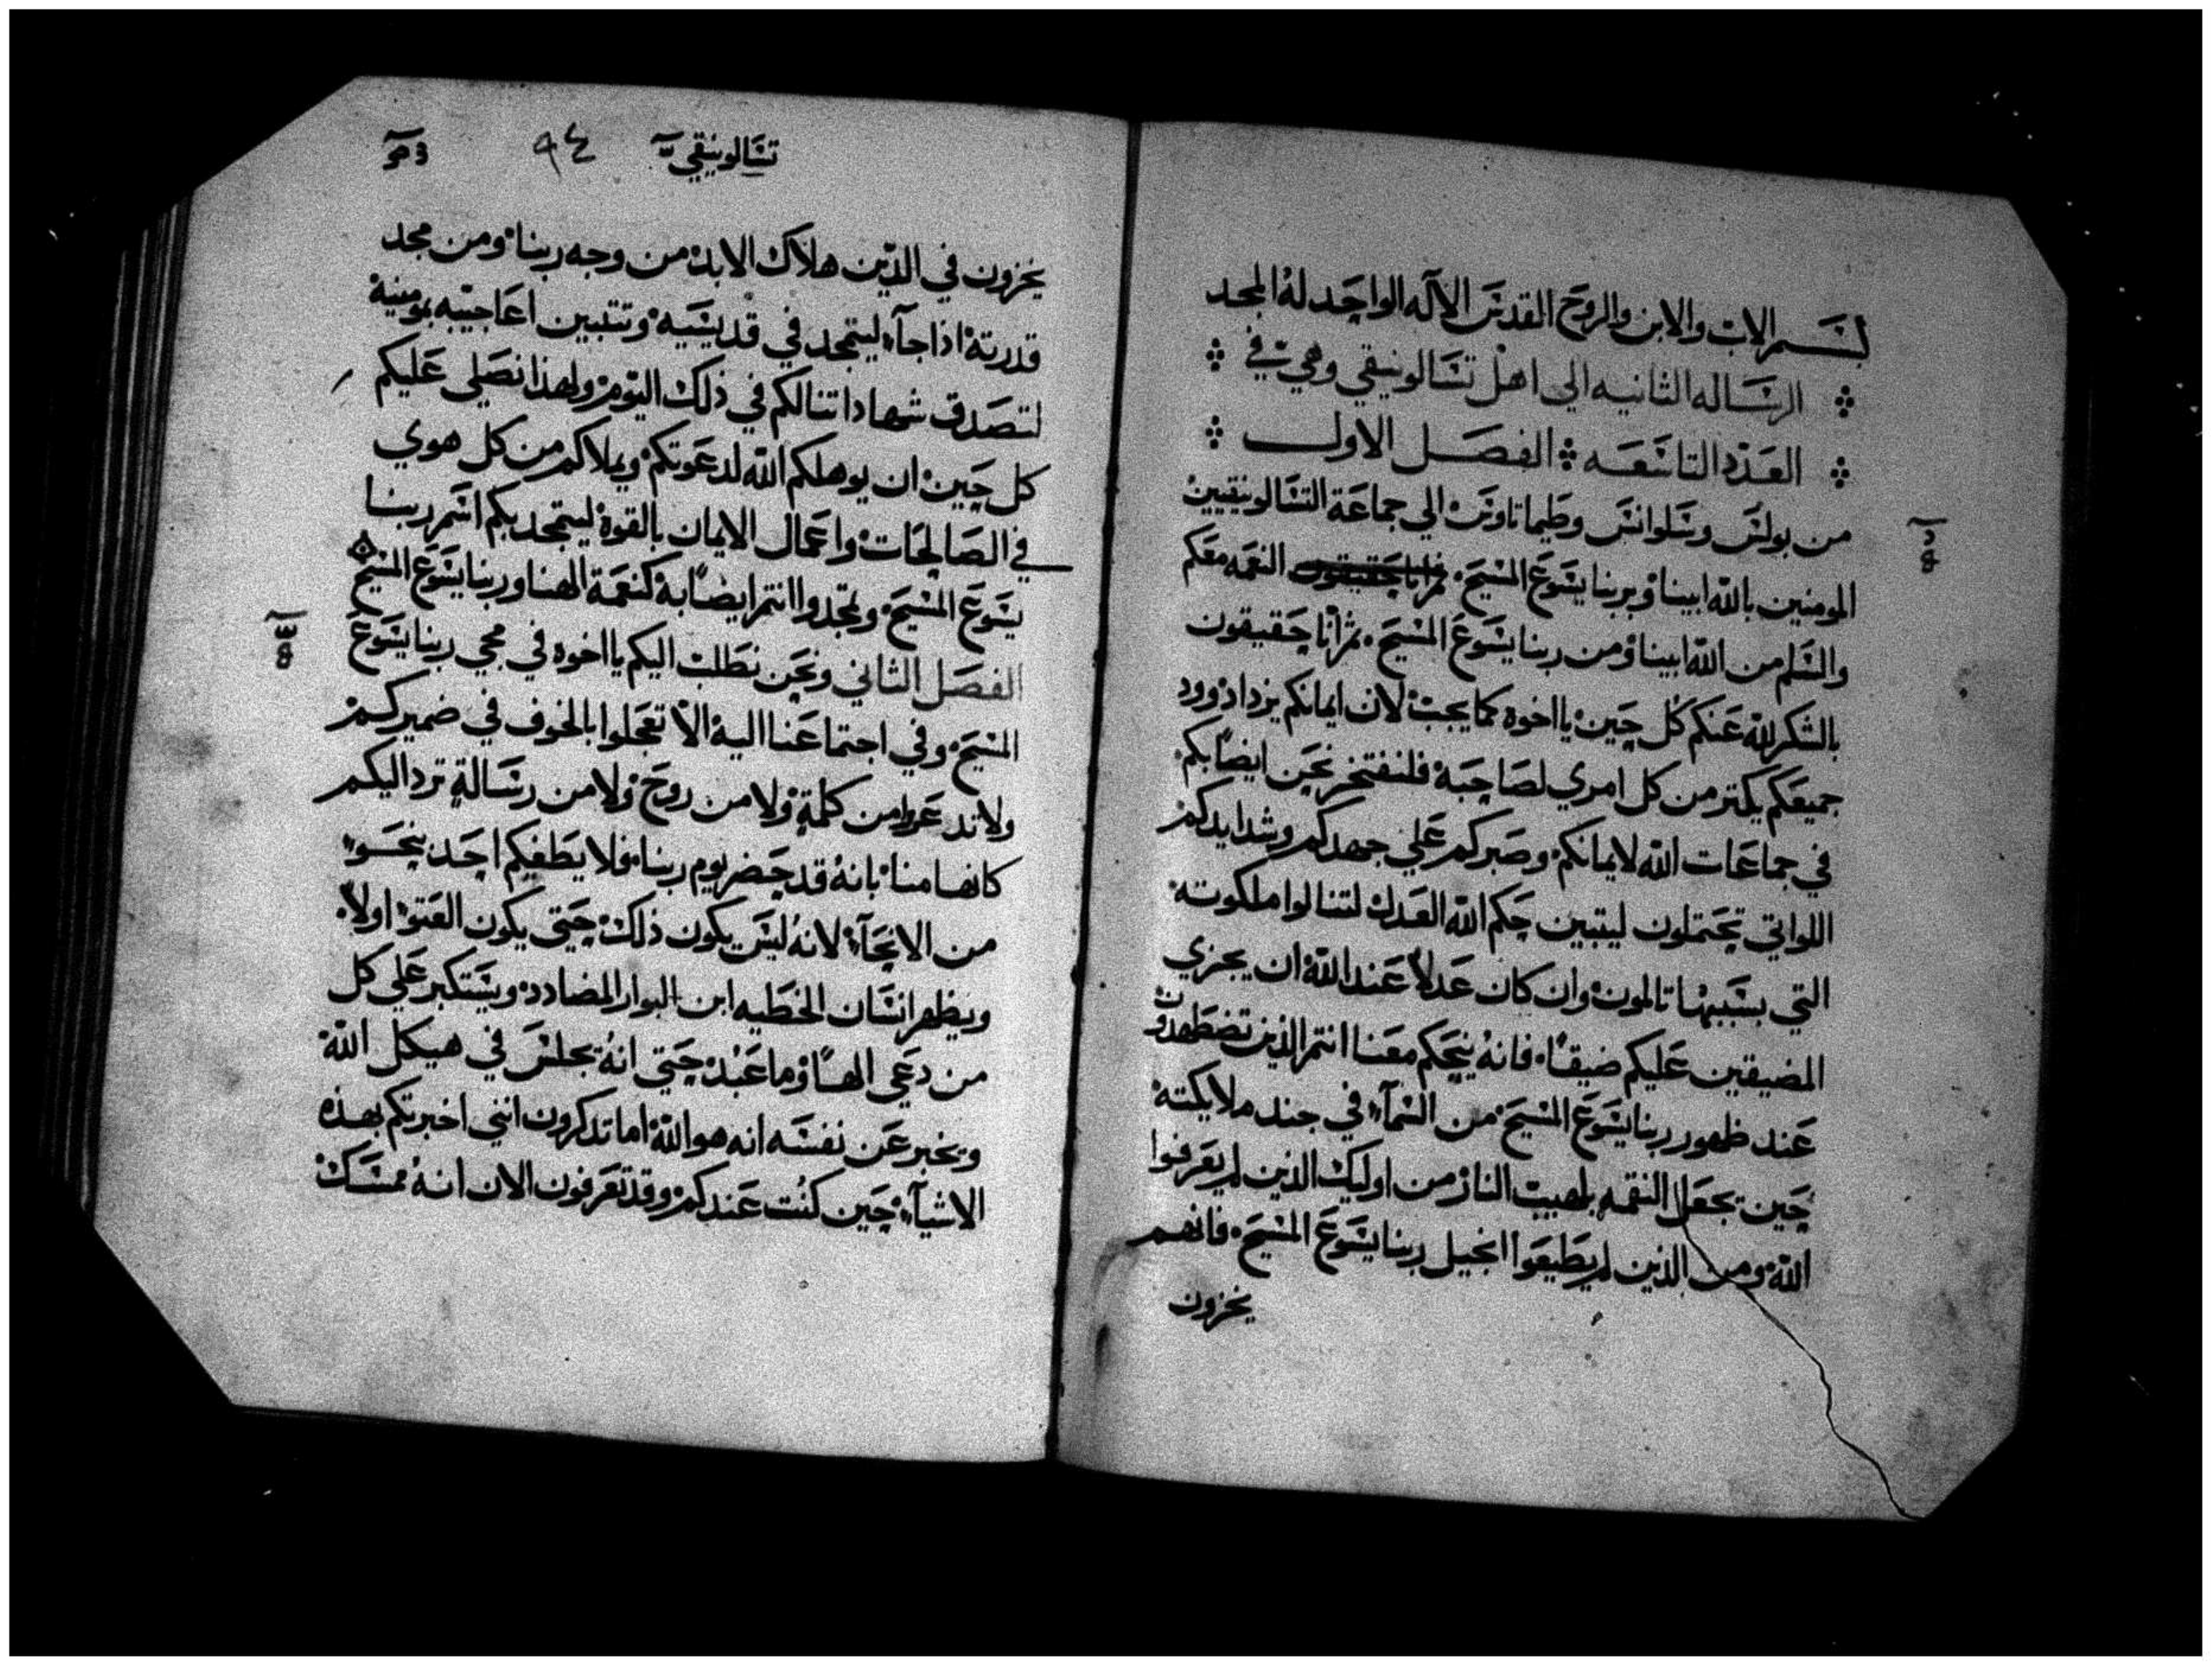 بسم الاب والابن والروح القدس الاله الواحد له المجد
الرساله الثانيه الي اهل تسالونيقي وهي في
العدد التاسعه الفصل الاول
من بولس وسلوانس وطيماتاوس الي جماعة التسالونيقيين
المومنين بالله ابينا وبربنا يسوع المسيح. النعمه معكم
والسلم من الله ابينا ومن ربنا يسوع المسيح. ثم انا حقيقون
بالشكر لله عنكم كل حين يا اخوه كما يجب لان ايمانكم يزداد وود
جميعكم يكتر من كل امري لصاحبه فلنفتخر نحن ايضًا بكم
في جماعات الله لايمانكم وصبركم علي جهدكم وشدايدكم
اللواتي تحتملون ليتبين حكم الله العدل لتنالوا ملكوته
التي بسببها تالمون وان كان عدلاً عند الله ان يجزي
المضيقين عليكم ضيقًا. فانه ينجيكم معنا انتم الذين تضطهدون
عند ظهور ربنا يسوع المسيح من السمآء في جند ملايكته
حين يجعل النقمه بلهيب النار من اوليك الذين لم يعرفوا
الله ومن الذين لم يطيعوا انجيل ربنا يسوع المسيح. فانهم
يخزون
تسالونيقي ٩٤
يخزون في الدين هلاك الابد من وجه ربنا ومن مجد
قدرته اذا جآء ليتمجد في قديسيه وتتبين اعاجيبه بمومنيه
لتصدق شهاداتنا لكم في ذلك اليوم ولهذا نصلي عليكم
كل حين ان يوهلكم الله لدعوتكم ويملاكم من كل هوي
في الصالحات واعمال الايمان بالقوة ليتمجد بكم اسم ربنا
يسوع المسيح وتمجدوا انتم ايضًا به كنعمة الهنا وربنا يسوع المسيح
الفصل الثاني ونحن نطلب اليكم يا اخوه في مجي ربنا يسوع
المسيح وفي اجتماعنا اليه الا تعجلوا بالخوف في ضميركم
ولا تدعروا من كلمة ولا من روح ولا من رسالة ترد اليكم
كانها منا بانه قد حضر يوم ربنا. فلا يطغيكم احد بنحو
من الانحآء لانه ليس يكون ذلك حتي يكون العتو اولاً.
ويظهر انسان الخطيه ابن البوار المضادد ويستكبر علي كل
من دعي الهًا وما عبد حتي انه يجلس في هيكل الله
ويخبر عن نفسه انه هو الله اما تدكرون انني اخبرتكم بهذه
الاشيآء حين كنت عندكم وقد تعرفون الان انه ممسك